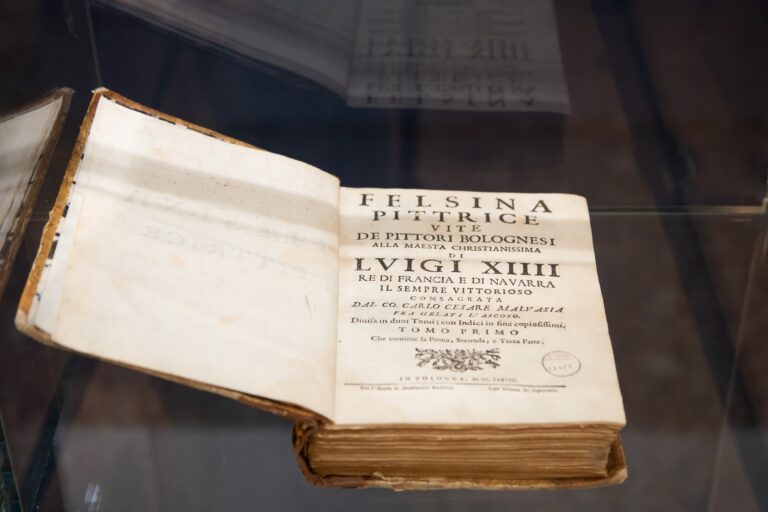 FELSINA
PITTRICE
VITE
DE PITTORI BOLOGNESI
ALLA MAESTA CHRISTIANISSIMA
DI
LVIGI XIIII
RE DI FRANCIA E DI NAVARRA
IL SEMPRE VITTORIOSO
CONSAGRATA
DAL CO. CARLO CESARE MALVASIA
FRA GELATI L'ASCOSO.
Diuisa in duoi Tomi; con Indici in fine copiosissimi.
TOMO PRIMO
Che contiene la Prima, Seconda, e Terza Parte.
IN BOLOGNA, M.DC.LXXVIII.
Per l'Erede di Domenico Barbieri. Con licenza de' Superiori.